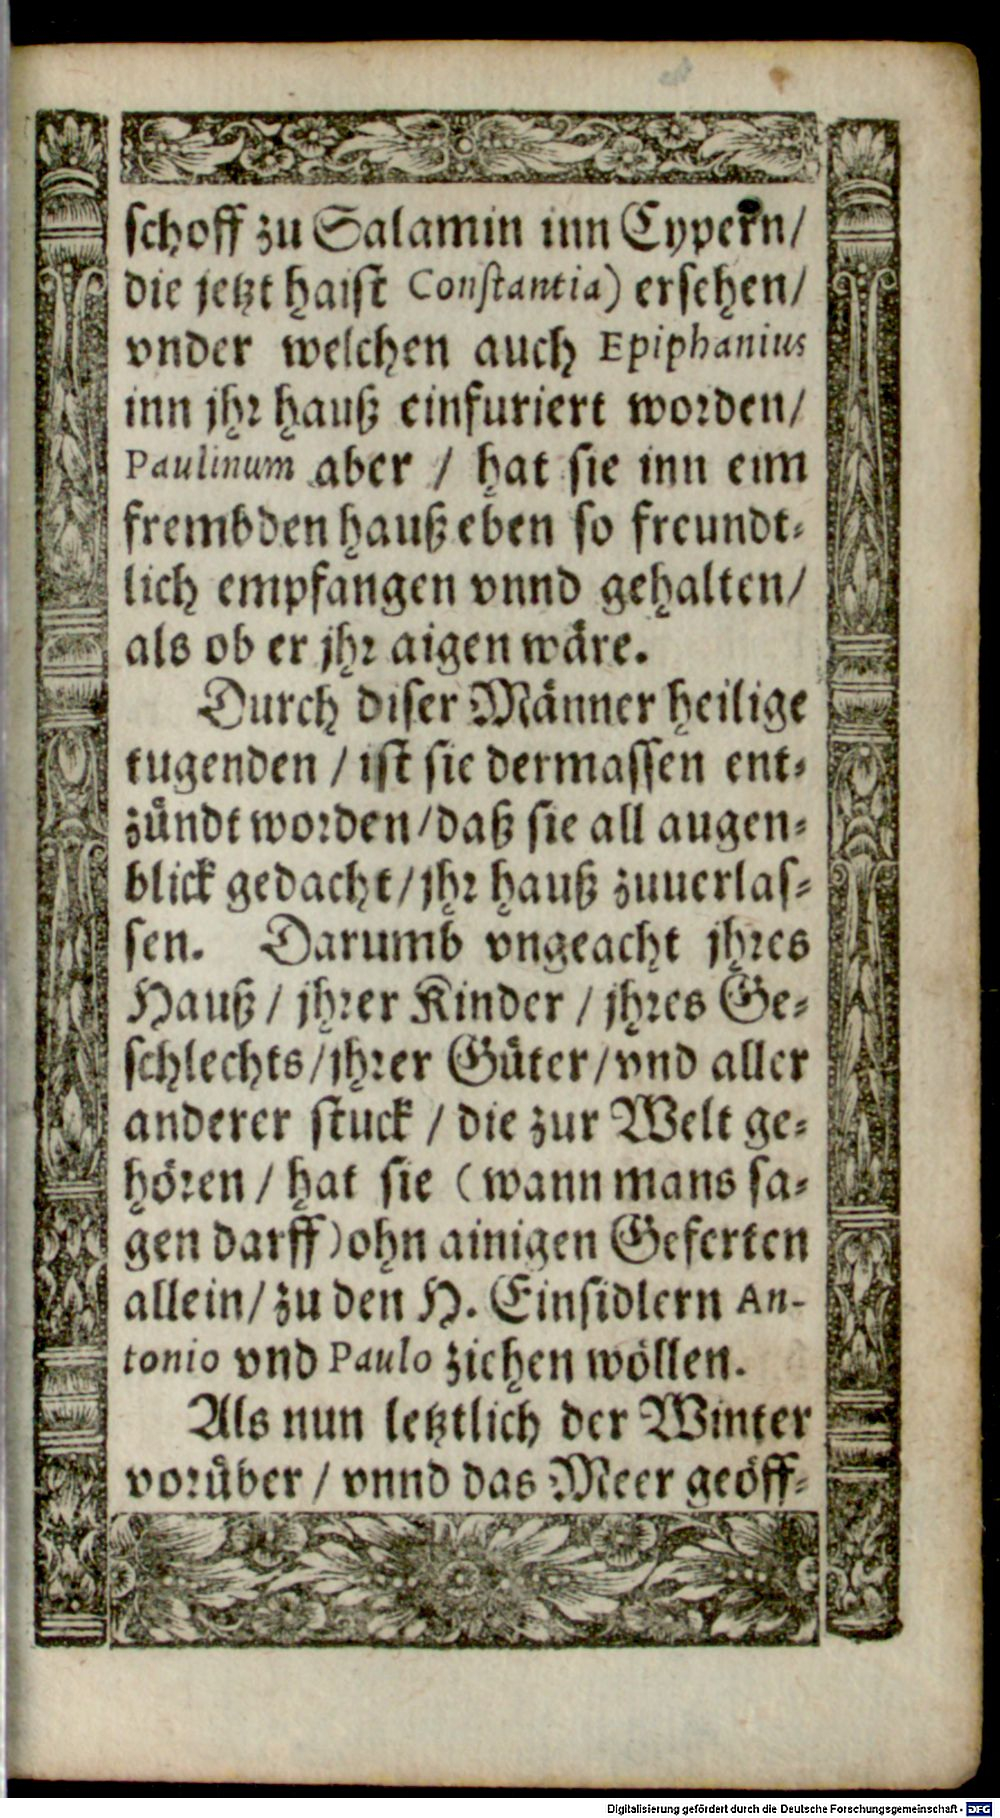 schoff zu Salamin inn Cypern/
die jetzt haist Constantia) ersehen/
vnder welchen auch Epiphanius
inn jhr hauß einfuriert worden/
Paulinum aber / hat sie inn eim
frembden hauß eben so freundt-
lich empfangen vnnd gehalten/
als ob er jhr aigen wäre.
Durch diser Männer heilige
tugenden / ist sie dermassen ent-
zündt worden/daß sie all augen-
blick gedacht/jhr hauß zuuerlas-
sen. Darumb vngeacht jhres
Hauß / jhrer Kinder / jhres Ge-
schlechts/jhrer Güter/vnd aller
anderer stuck / die zur Welt ge-
hören / hat sie (wann mans sa-
gen darff) ohn ainigen Geferten
allein/ zu den H. Einsidlern An-
tonio vnd Paulo ziehen wöllen.
Als nun letztlich der Winter
vorüber / vnnd das Meer geöff-
Digitalisierung gefördert durch die Deutsche Forschungsgemeinschaft - DFG